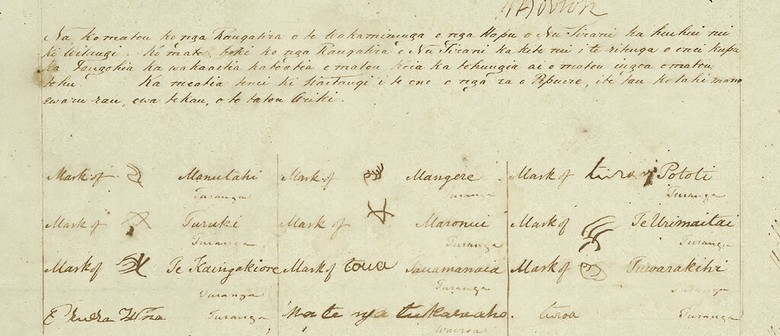 Na ko matou ko nga Rangatira o te Wakaminenga o nga Hapu o Nu Tirani ka huihui nui
ki Waitangi. Ko matou hoki ko nga Rangatira o Nu Tirani ka kite nui i te ritenga o enei kupu
ka tangohia ka wakaaetia katoatia e matou, koia ka tohungia ai o matou ingoa o matou
tohu. Ka meatia tenei ki Waitangi i te ono o nga ra o Pepuere, i te tau kotahi mano
ewaru rau, ewa tekau, o to tatou Ariki.
Mark of Manutahi Mark of Mangere Mark of Pototi
Turanga Turanga Turanga
Mark of Turuki Mark of Maronui Mark of Te Urimaitai
Turanga Turanga Turanga
Mark of Te Kaingakiore Mark of toua Tauamanaia Mark of Tuwarakihi
Turanga Turanga Turanga
Turanga turoa
Wairoa